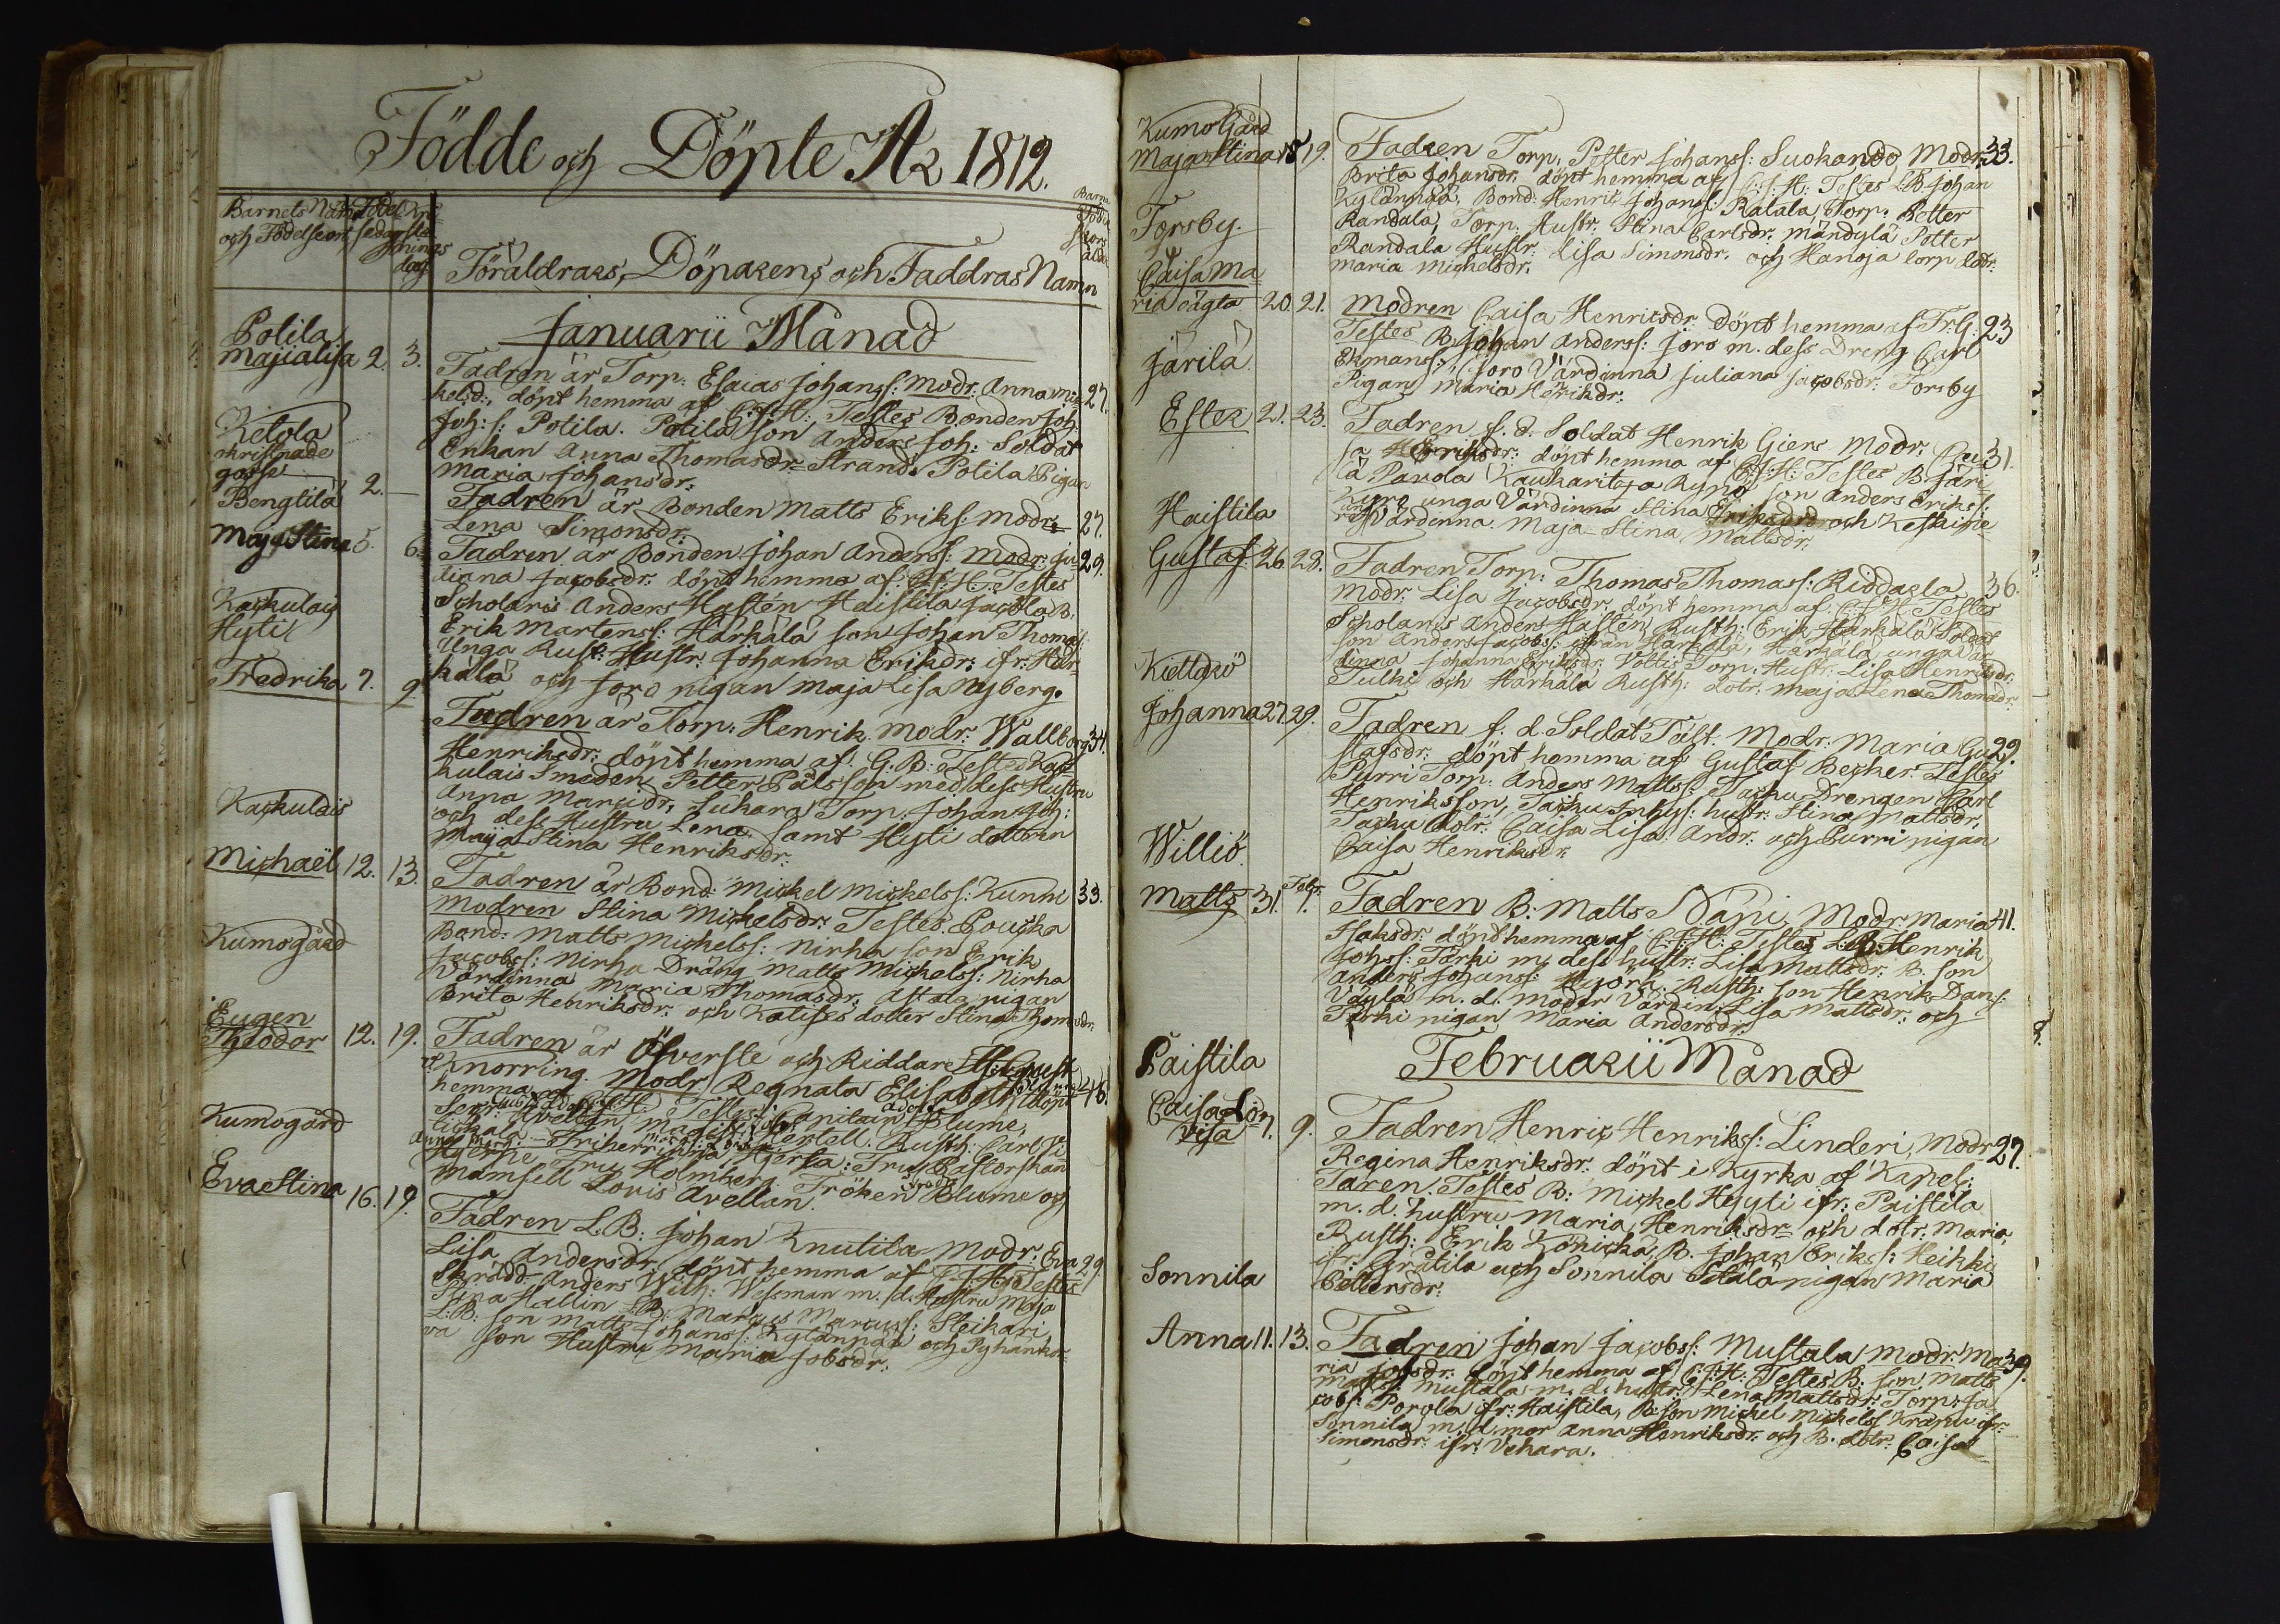 Födde och Döpte År 1812.
Barnets Namn och Födelseort
Födelsedag
Kristningsdag
Föräldrars, Döparens och Faddras Namn
Januarii Månad
Potila
Majialisa 2. 3.
Fadren är Torp: Esaias Johanss: Modr: Anna Mi= 27.
kelsd:, döpt hemma af C:F:H: Testes Bonden Joh:
Joh: s: Potila. Potila son Anders Joh: Soldat
Enkan Anna Thomasdr= Strand. Potila Pigan
Maria Johansdr:
Ketola
okristnade
gosse 2. —
Fadren är Bonden Matts Eriks: Modr: 27.
Lena Simonsdr:
Bengtilä
Maja Stina 5. 6.
Fadren är Bonden Johan Anderss: Modr: Ju= 29.
liana Jacobsdr: döpt hemma af: C:F:H: Testes
Scholaris Anders Hastén Haistila Jacola B.
Erik Martenss: Härkälä son Johan Thomas:
Unga Rust: Hustr: Johanna Eriksdr: ifr: Här=
kälä och Joro pigan Maja Lisa Nyberg.
Kaskulais
Hyti
Fredrika 7. 9.
Fadren är Torp: Henrik. Modr: Wallborg 34.
Henriksdr: döpt hemma af: G. B: Testes Kas=
kulais Smeden Petter Pålsson med dess Hustru
Anna Marcidr, Suhara Torp: Johan Joh:
och dess Hustru Lena samt Hyti dottren
Maija Stina Henriksdr:
Kaskulais
Michaël 12. 13.
Fadren är Bond: Mickel Mickelss: Kunni 33.
Modren Stina Mickelsdr: Testes. Poucka
Bond: Matts Mickelss: Nirha son Erik
Jacobss: Nirha Dräng Matts Mickelss: Nirha
Värdinna Maria Thomasdr: Astala pigan
Brita Henriksdr: och Katises dotter Stina Thomsdr:
Kumogård
Eugen
Theodor 12. 19.
Fadren är Öfverste och Riddare
Knorring. Modr: Regnata Elisabeth döpt 46.
hemma
Friherrinna Hjerta: Fru Pastorskan
Fru Holmberg. Fröken Blume och
Mamsell Lovis Avellan.
Kumogård
Eva Stina 16. 19.
Fadren L: B: Johan Knutila Modr: Eva 29.
Lisa Andersdr. döpt hemma af C:F:H: Testes
Skrädd: Anders Wilh: Wessman m. d. Hustru Maja
Stina Hallin. B: Marcus Marcuss: Steikari
L: B: son Matts Johanss: Kylänpää och Pyhänkor=
va son Hustru Maria Jobsdr:
Kumogård
Maja Stina 18 19.
Fadren Torp: Petter Johanss: Suokando, Modr: 33.
Brita Johansdr: döpt hemma af C:F:H: Testes L.B. Johan
Kylänpää, Bond: Henric Johanss: Ratala, Torp: Petter
Randala, Torp: Hustr: Stina Carlsdr: Mändylä Petter
Randala Hustr: Lisa Simonsdr. och Hanoja torp dotr:
Maria Mickelsdr:
Forsby.
Caisa Ma=
ria oägta 20. 21.
Modren Caisa Henricsdr: Döpt hemma af Fr: G: 23
Testes B: Johan Anderss: Joro m. dess Dreng Carl
Ekmanss: Joro Värdinna Juliana Jacobsdr: Forsby
Pigan Maria Henrikdr:
Järilä
Ester 21. 23.
Fadren f. d. Soldat Henrik Giers Modr: Cai= 31.
sa Henriksdr: döpt hemma af C:F:H: Testes B: Järi=
lä Pavola Kaukaritsa Kyrö son Anders Erikss:
Kyrö unga Värdinna Stina Eriksdr: och Keskine=
Värdinna Maja-Stina Mattsdr:
Haistila
Gustaf. 26. 28.
Fadren Torp: Thomas Thomass: Riddagla 36.
Modr: Lisa Jacobsdr: döpt hemma af C:F:H: Testes
Scholaris Anders Hastén, Rusth: Erik Härkälä Soldat
son Anders Jacobs: från Härkälä, Härkälä unga Vär=
dinna Johanna Eriksdr: Voltti Torp: Hustr: Lisa Henriksdr:
Tulki och Härkälä Rusth: dotr: Maja Lena Thomasdr:
Kiettarö
Johanna 27. 29.
Fadren f. d. Soldat Tält. Modr: Maria Gu= 29.
stafsdr: döpt hemma af Gustaf Becker. Testes
Purri Torp: Anders Matts: Tacku Drengen Carl
Henriksson, Tacku Inhys: hustr: Stina Mattsdr,
Tacku dotr: Caisa Lisa Andr: och Purri pigan
Caisa Henriksdr:
Williö
Matts 31. Febr. 1.
Fadren B: Matts Näpi, Modr: Maria 41.
Isaksdr: döpt hemma af C:F:H: Testes L.B: Henrik
Johss: Tärki m. dess hustr: Lisa Mattsdr: B. son
Anders Johanss: Hyörä. Rusth: son Henrik Dans:
Väylä m. d. moder Värdin: Lisa Mattsdr: och
Tärki pigan Maria Andersdr:
Februarii Månad
Paistila
Caisa Lo=
visa 7. 9.
Fadren Henric Henrikss: Linderi, Modr 27.
Regina Henriksdr: döpt i Kyrka af Kapel:
Taren. Testes B: Mickel Hyyti ifr: Paistila
m. d. hustru Maria Henriksdr= och dotr: Maria,
Rusth: Erik Könickä, B. Johan Erikss: Heikki
ifr: Prätila och Sonnila Sälä pigan Maria
Pettersdr:
Sonnila
Anna 11. 13.
Fadren Johan Jacobss: Mustala Modr: Ma= 39.
ria Jobsdr: döpt hemma af C:F:H: Testes B. son Matts
Matts: Mustala m. d. hustr: Lena Mattsdr: Torp: Ja=
cobs: Porola ifr: Haistila, B: son Mickel Mickelss: Kranni ifr:
Sonnila m. d. mor Anna Henriksdr: och B. dotr: Caisa
Simonsdr: ifr: Vehara.